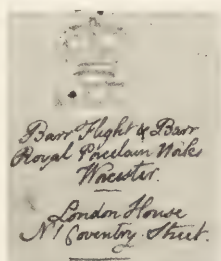 Barr Flight & Barr
Royal Porcelain Works
Worcester.
London House
No. 1 Coventry Street.